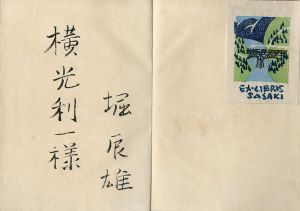 横光利一様
堀辰雄
EX·LIBRIS
SASAKI